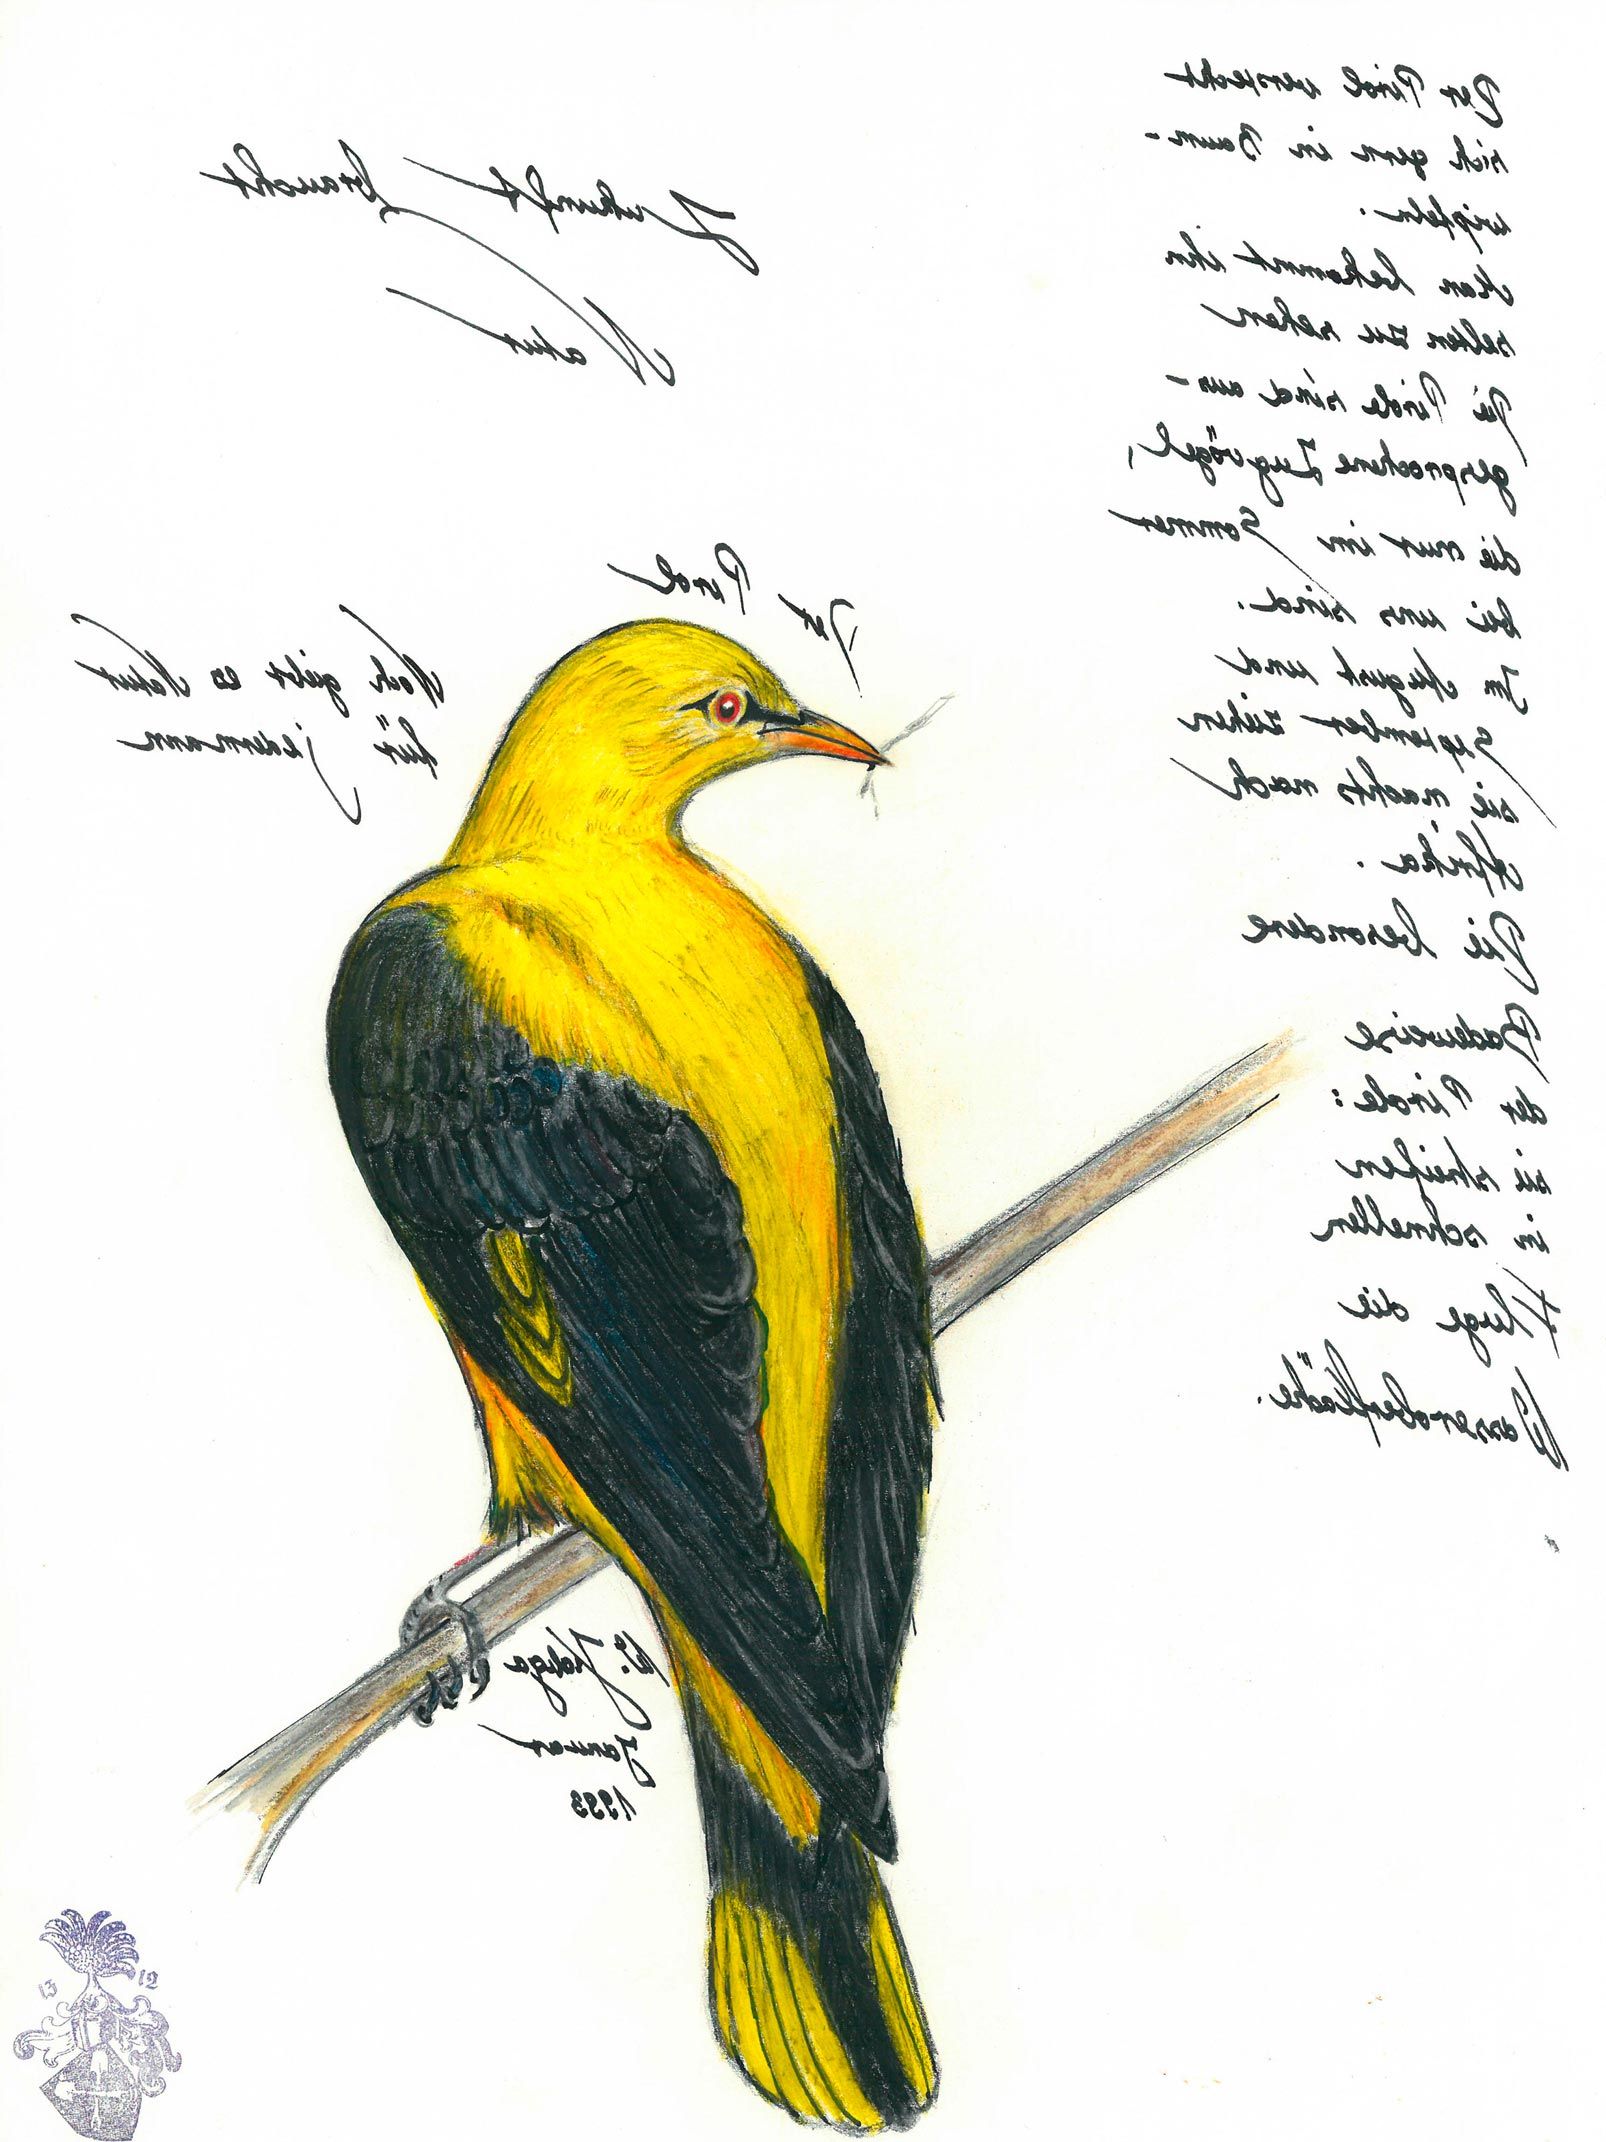 Zukunft braucht
Natur
Der Pirol
Noch gibt es Natur
für jedermann
Der Pirol versteckt
sich gern in Baum-
wipfeln.
Man bekommt ihn
selten zu sehen
Die Pirole sind aus-
gesprochene Zugvögel,
die nur im Sommer
bei uns sind.
Im August und
September ziehen
sie nachts nach
Afrika.
Die besondere
Badeweise
der Pirole:
sie streifen
in schnellen
Fluge die
Wasseroberfläche.
W.
Januar
1993